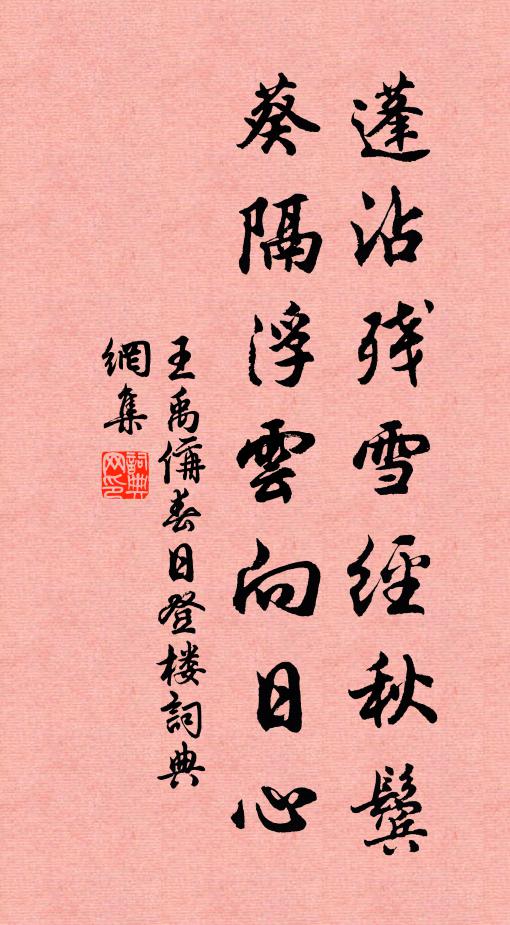 蓬沾残雪經秋鬢
葵隔浮雲向日心
王禹偁春日登楼詞典
網集
詞典
网印